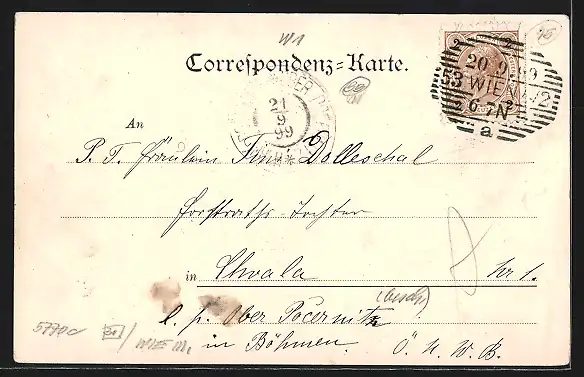 W1
Correspondenz-Karte.
2 2
20 9 99
53 WIEN /2
2 6-7N
a
21
9
99
An
P. T. Fräulein Tini Dolleschal
Forstraths-Tochter
in Chvala Nr 1.
l. p. Ober Počernitz
in Böhmen. Ö. N. W. B.
5770c